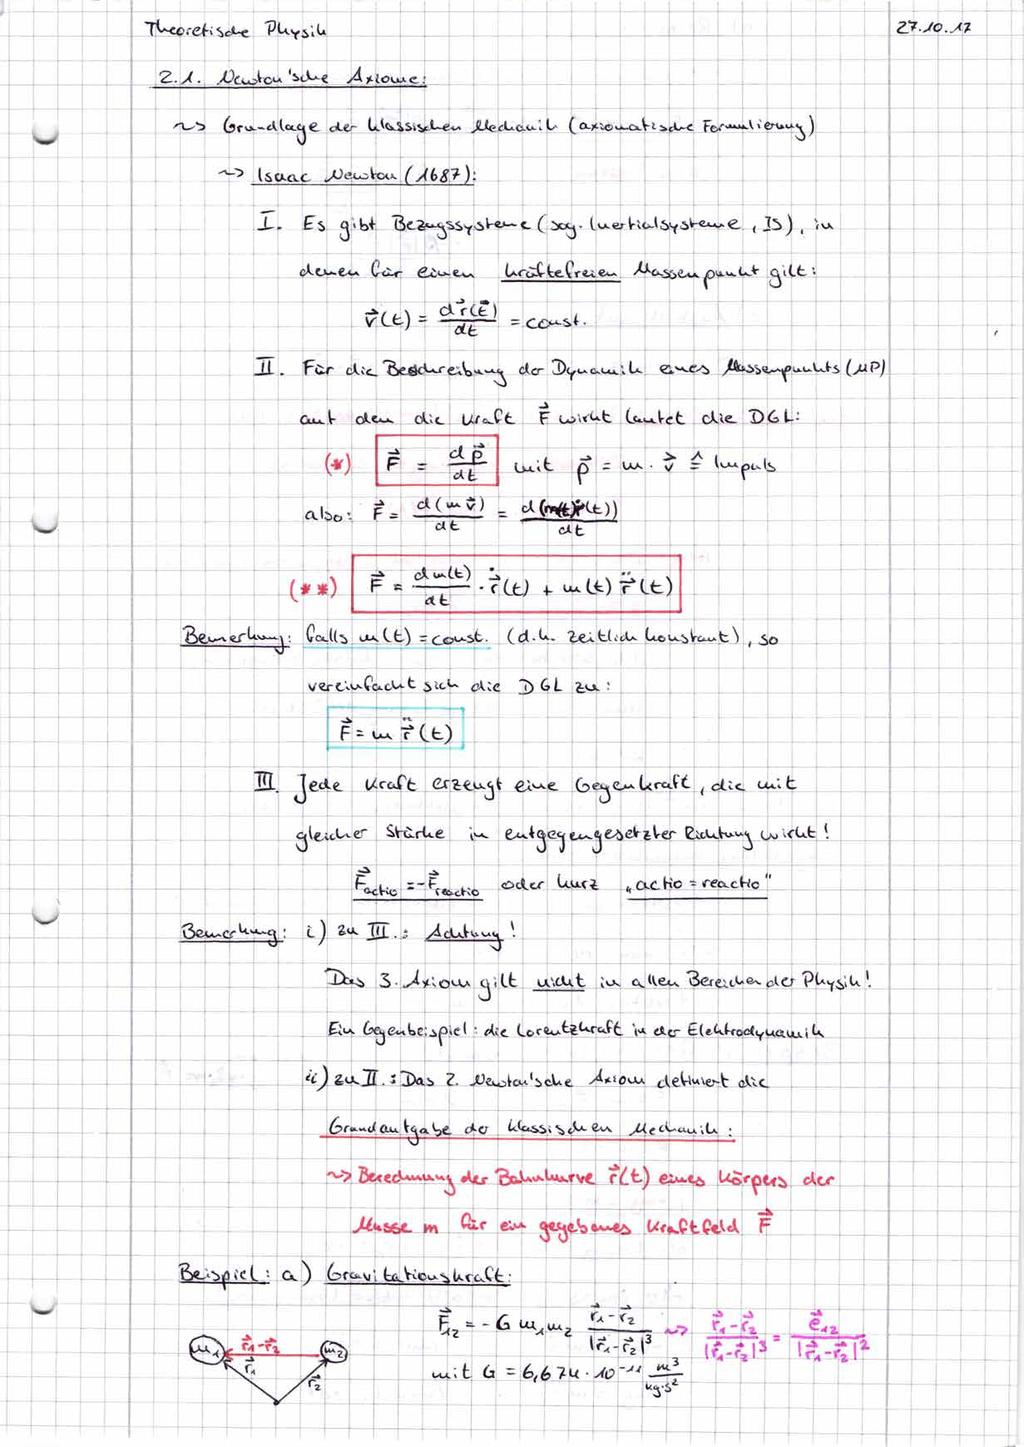 Theoretische Physik
27.10.17
2.1. Newton'sche Axiome:
~> Grundlage der klassischen Mechanik (axiomatische Formulierung)
~> Isaac Newton (1687):
I. Es gibt Bezugssysteme (sog. Inertialsysteme, IS), in
denen für einen kräftefreien Massenpunkt gilt:
v⃗(t) = dr⃗(t)/dt = const.
II. Für die Beschreibung der Dynamik eines Massenpunkts (MP)
auf den die Kraft F⃗ wirkt lautet die DGL:
(*) F⃗ = dp⃗/dt mit p⃗ = m · v⃗ ≙ Impuls
also: F⃗ = d(m v⃗)/dt = d(m(t)ṙ⃗(t))/dt
(**) F⃗ = dm(t)/dt · ṙ⃗(t) + m(t) r̈⃗(t)
Bemerkung: falls m(t) = const. (d.h. zeitlich konstant), so
vereinfacht sich die DGL zu:
F⃗ = m r̈⃗(t)
III. Jede Kraft erzeugt eine Gegenkraft, die mit
gleicher Stärke in entgegengesetzter Richtung wirkt!
F⃗actio = -F⃗reactio oder kurz „actio = reactio"
Bemerkung: i) zu III.: Achtung!
Das 3. Axiom gilt nicht in allen Bereichen der Physik!
Ein Gegenbeispiel: die Lorentzkraft in der Elektrodynamik
ii) zu II.: Das 2. Newton'sche Axiom definiert die
Grundaufgabe der klassischen Mechanik:
~> Berechnung der Bahnkurve r⃗(t) eines Körpers der
Masse m für ein gegebenes Kraftfeld F⃗
Beispiel: a) Gravitationskraft:
F⃗₁₂ = - G m₁m₂ (r⃗₁-r⃗₂)/|r⃗₁-r⃗₂|³ ~> (r⃗₁-r⃗₂)/|r⃗₁-r⃗₂|³ = e⃗₁₂/|r⃗₁-r⃗₂|²
mit G = 6,674 · 10⁻¹¹ m³/kg·s²
m₁ r⃗₁-r⃗₂ m₂
r⃗₁ r⃗₂